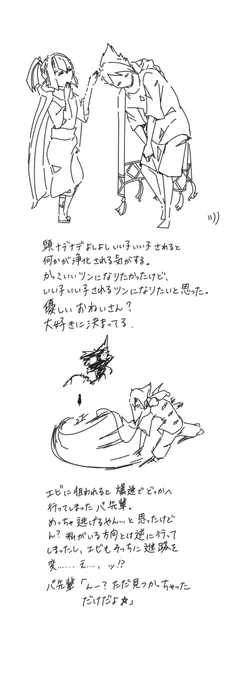 頭ナデナデよしよしいい子いい子されると
何かが浄化される気がする。
かっこいいツンになりたかったけど、
いい子いい子されるツンになりたいと思った。
優しいおねいさん?
大好きに決まってる.
エビに狙われると 爆速でどっかへ
行ってしまったパ先輩。
めっちゃ逃げるやん…と思ったけど
ん?私がいる方向とは逆に行って
しまったし、エビもそっちに進路を
変……え…、ッ!?
パ先輩「んー?ただ見つかっちゃった
だけだよ☆」